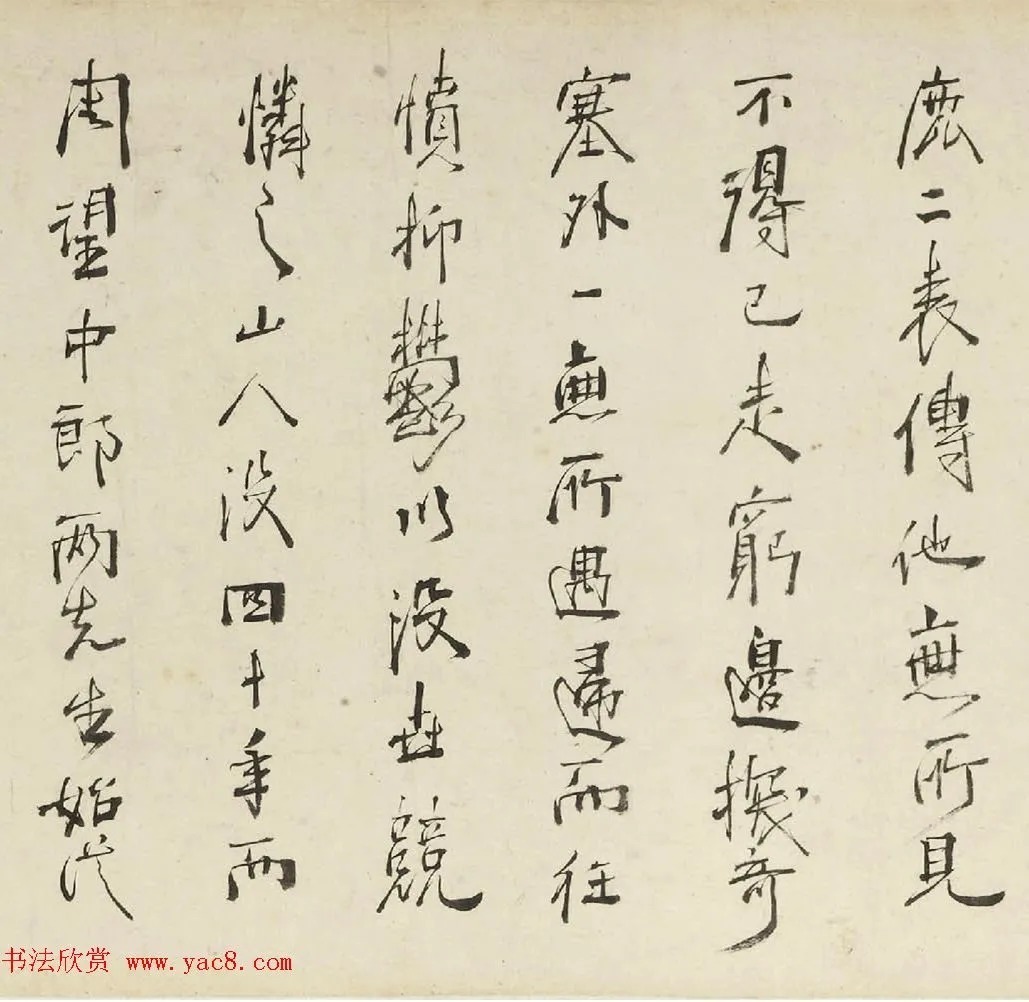 鹿二表傳他無所見
不得已走窮邊奇
塞外一無所遇歸而狂
憤抑鬱以没世競
憐之山人没四十年而
周望中郎兩先生始從
书法欣赏 www.yac8.com